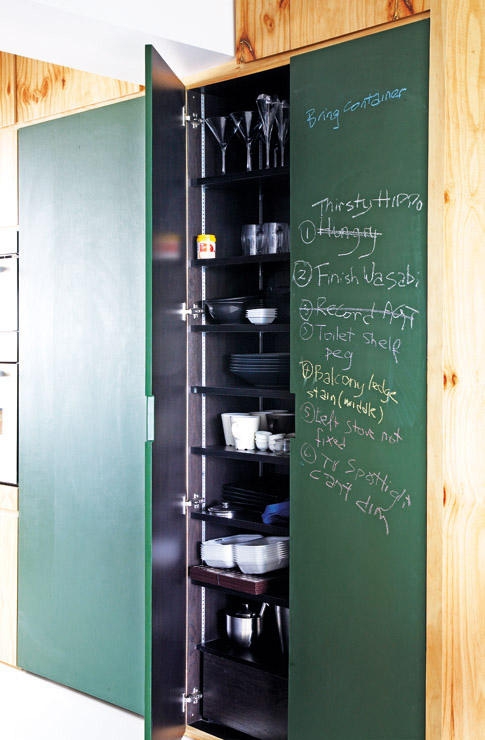 Bring container
Thirsty HIPPO
① Hungry
② Finish Wasabi
③ Record
③ Toilet shelf
peg
④ Balcony ledge
stain (middle)
⑤ Left stove not
fixed
⑥ TV Spotlight
can't dim